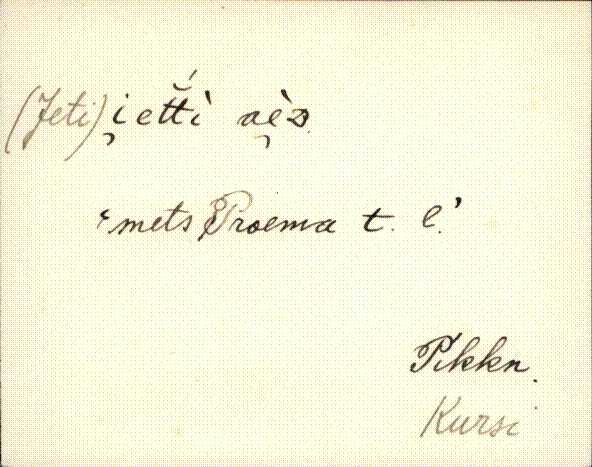 (Jeti) i̯ett̆́ì aè̯z.
‘mets Proema t. l.’
Pikkn.
Kursi